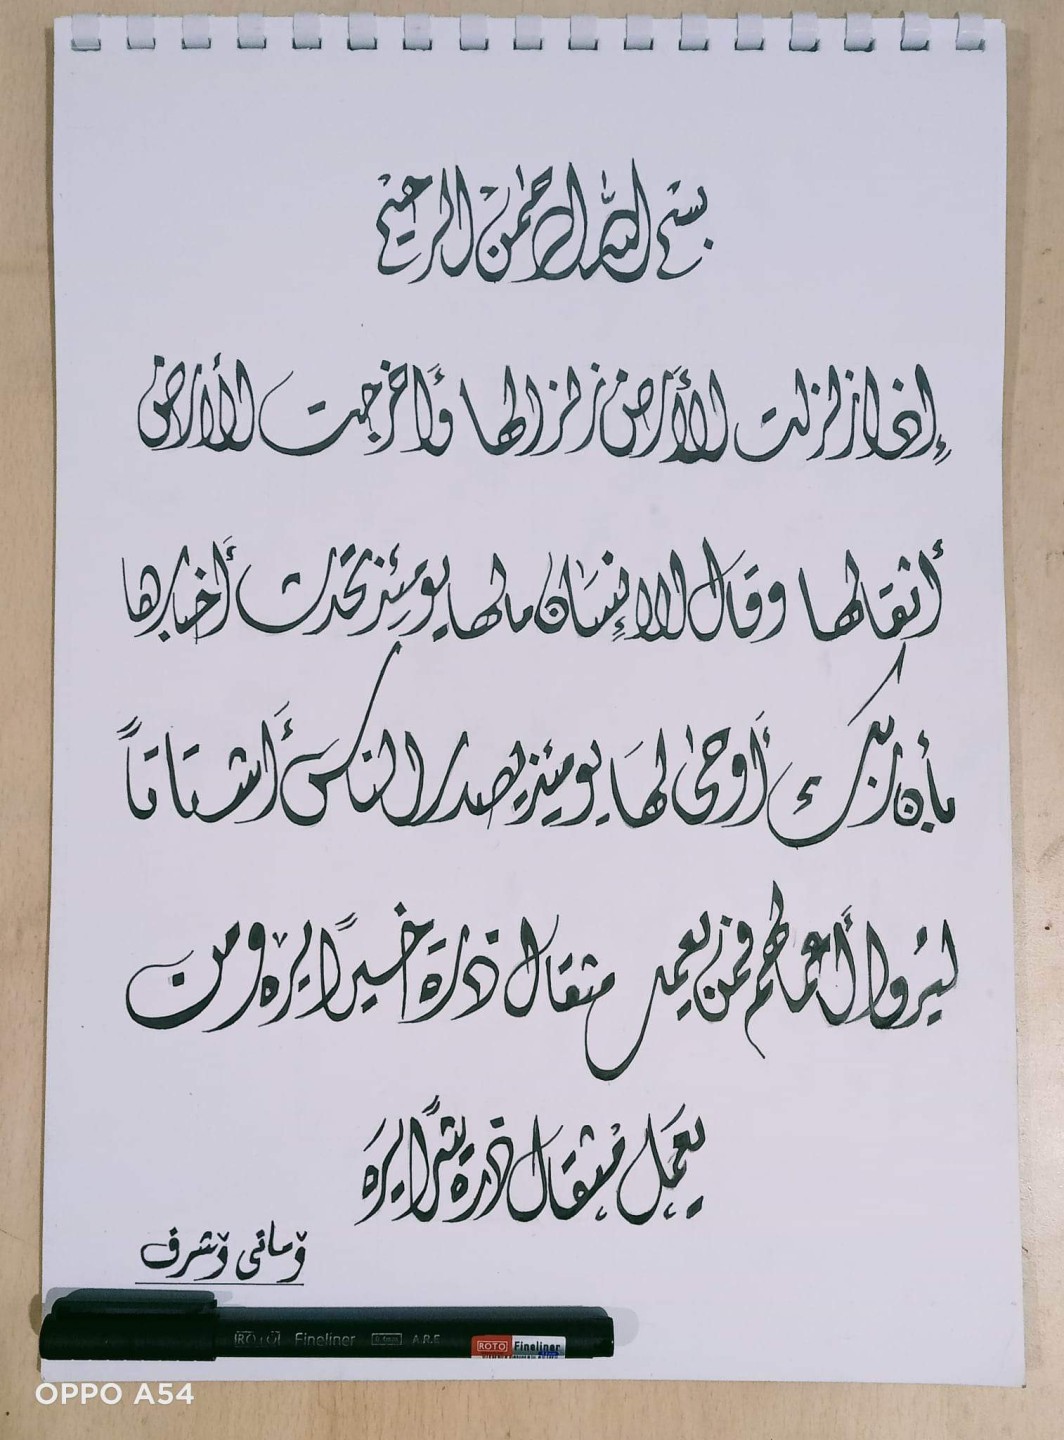 بسم الله الرحمن الرحيم
إذا زلزلت الأرض زلزالها وأخرجت الأرض
أثقالها وقال الإنسان مالها يومئذ تحدث أخبارها
بأن ربك أوحى لها يومئذ يصدر الناس أشتاتاً
ليروا أعمالهم فمن يعمل مثقال ذرة خيرًا يره ومن
يعمل مثقال ذرة شرًا يره
ROTO Fineliner A.R.E
ROTO Fineliner
OPPO A54